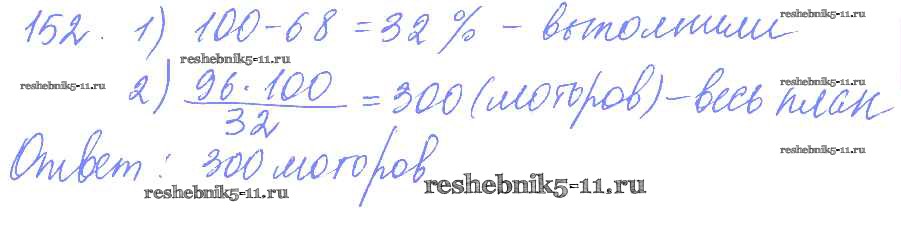 152. 1) 100-68 = 32 % - выполнили
2) 96 · 100 / 32 = 300 (моторов) - весь план
Ответ: 300 моторов
reshebnik5-11.ru
reshebnik5-11.ru
reshebnik5-11.ru
reshebnik5-11.ru
reshebnik5-11.ru
reshebnik5-11.ru
reshebnik5-11.ru